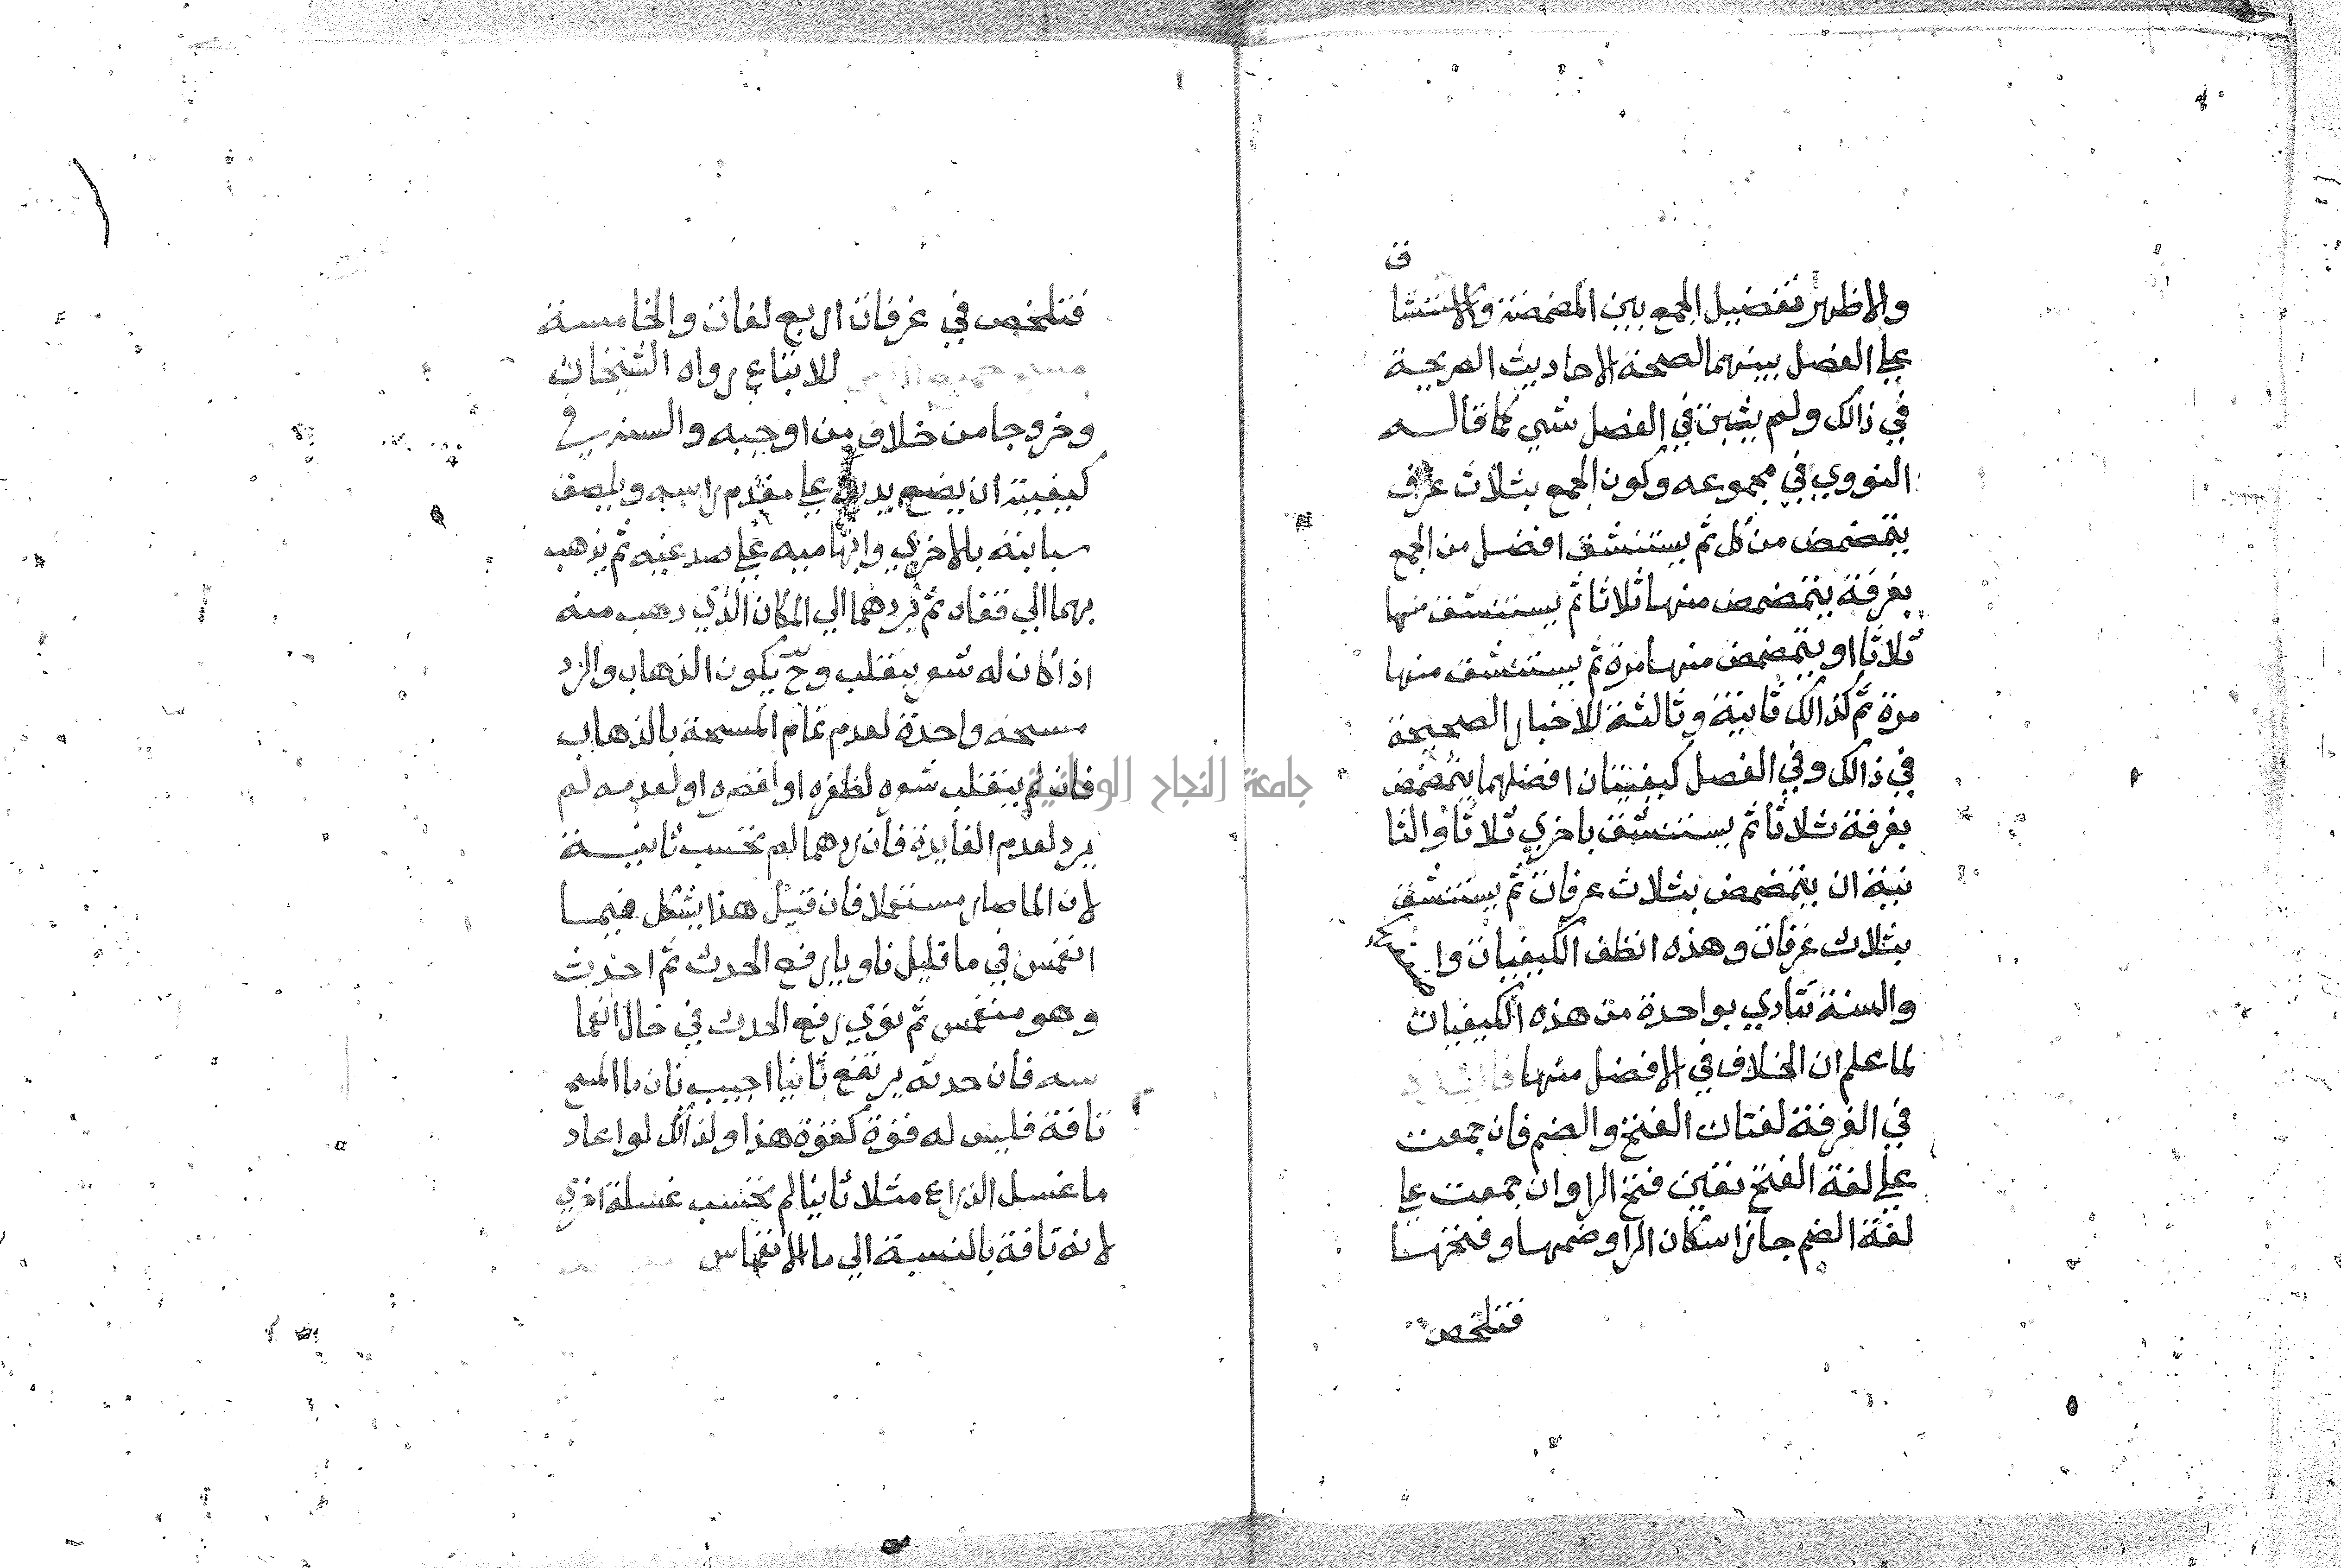 والاظهر تفضيل الجمع بين المضمضة والاستنشا
ق
علي الفصل بينهما لصحة الاحاديث الصريحة
في ذالك ولم يثبت في الفصل شي كما قاله
النووي في مجموعه وكون الجمع بثلاث غرف
يتمضمض من كل ثم يستنشق افضل من الجمع
بغرفة يتمضمض منها ثلاثا ثم يستنشق منها
ثلاثا او يتمضمض منها مرة ثم يستنشق منها
مرة ثم كذالك ثانية وثالثة للاخبار الصحيحة
في ذالك وفي الفصل كيفيتان افضلهما يتمضمض
بغرفة ثلاثا ثم يستنشق باخري ثلاثا والثا
نية ان يتمضمض بثلاث غرفات ثم يستنشق
بثلاث غرفات وهذه انظف الكيفيات
والسنة تتادي بواحدة من هذه الكيفيات
لما علم ان الخلاف في الافضل منها فائدة
في الغرفة لغتان الفتح والضم فان جمعت
علي لغة الفتح تعين فتح الرا وان جمعت علي
لغة الضم جاز اسكان الرا وضمها وفتحها
فتلخص
فتلخص في غرفات اربع لغات والخامسة
مسح جميع الراس للاتباع رواه الشيخان
وخروجا من خلاف من اوجبه والسنة في
كيفيته ان يضع يديه علي مقدم راسه ويلصق
سبابته بالاخري وابهاميه علي صدغيه ثم يذهب
بهما الي قفاه ثم يردهما الي المكان الذي دهب منه
اذا كان له شعر ينقلب وح يكون الذهاب والرد
مسحة واحدة لعدم تمام المسحة بالذهاب
فان لم ينقلب شعره لظفره او لقصره او لعدمه لم
يرد لعدم الفايدة فان ردهما لم تحسب ثانية
لان الما صار مستعملا فان قيل هذا يشكل فيما
انغمس في ما قليل ناويا رفع الحدث ثم احدث
وهو منغمس ثم نوي رفع الحدث في حال انغما
سه فان حدثه يرتفع ثانيا اجيب بان ما المسح
تافة فليس له قوة كقوة هذا ولذالك لو اعاد
ما غسل الذراع مثلا ثانيا لم تحسب غسلة اخري
لانه تافة بالنسبة الي ما الانغماس
جامعة النجاح الوطنية